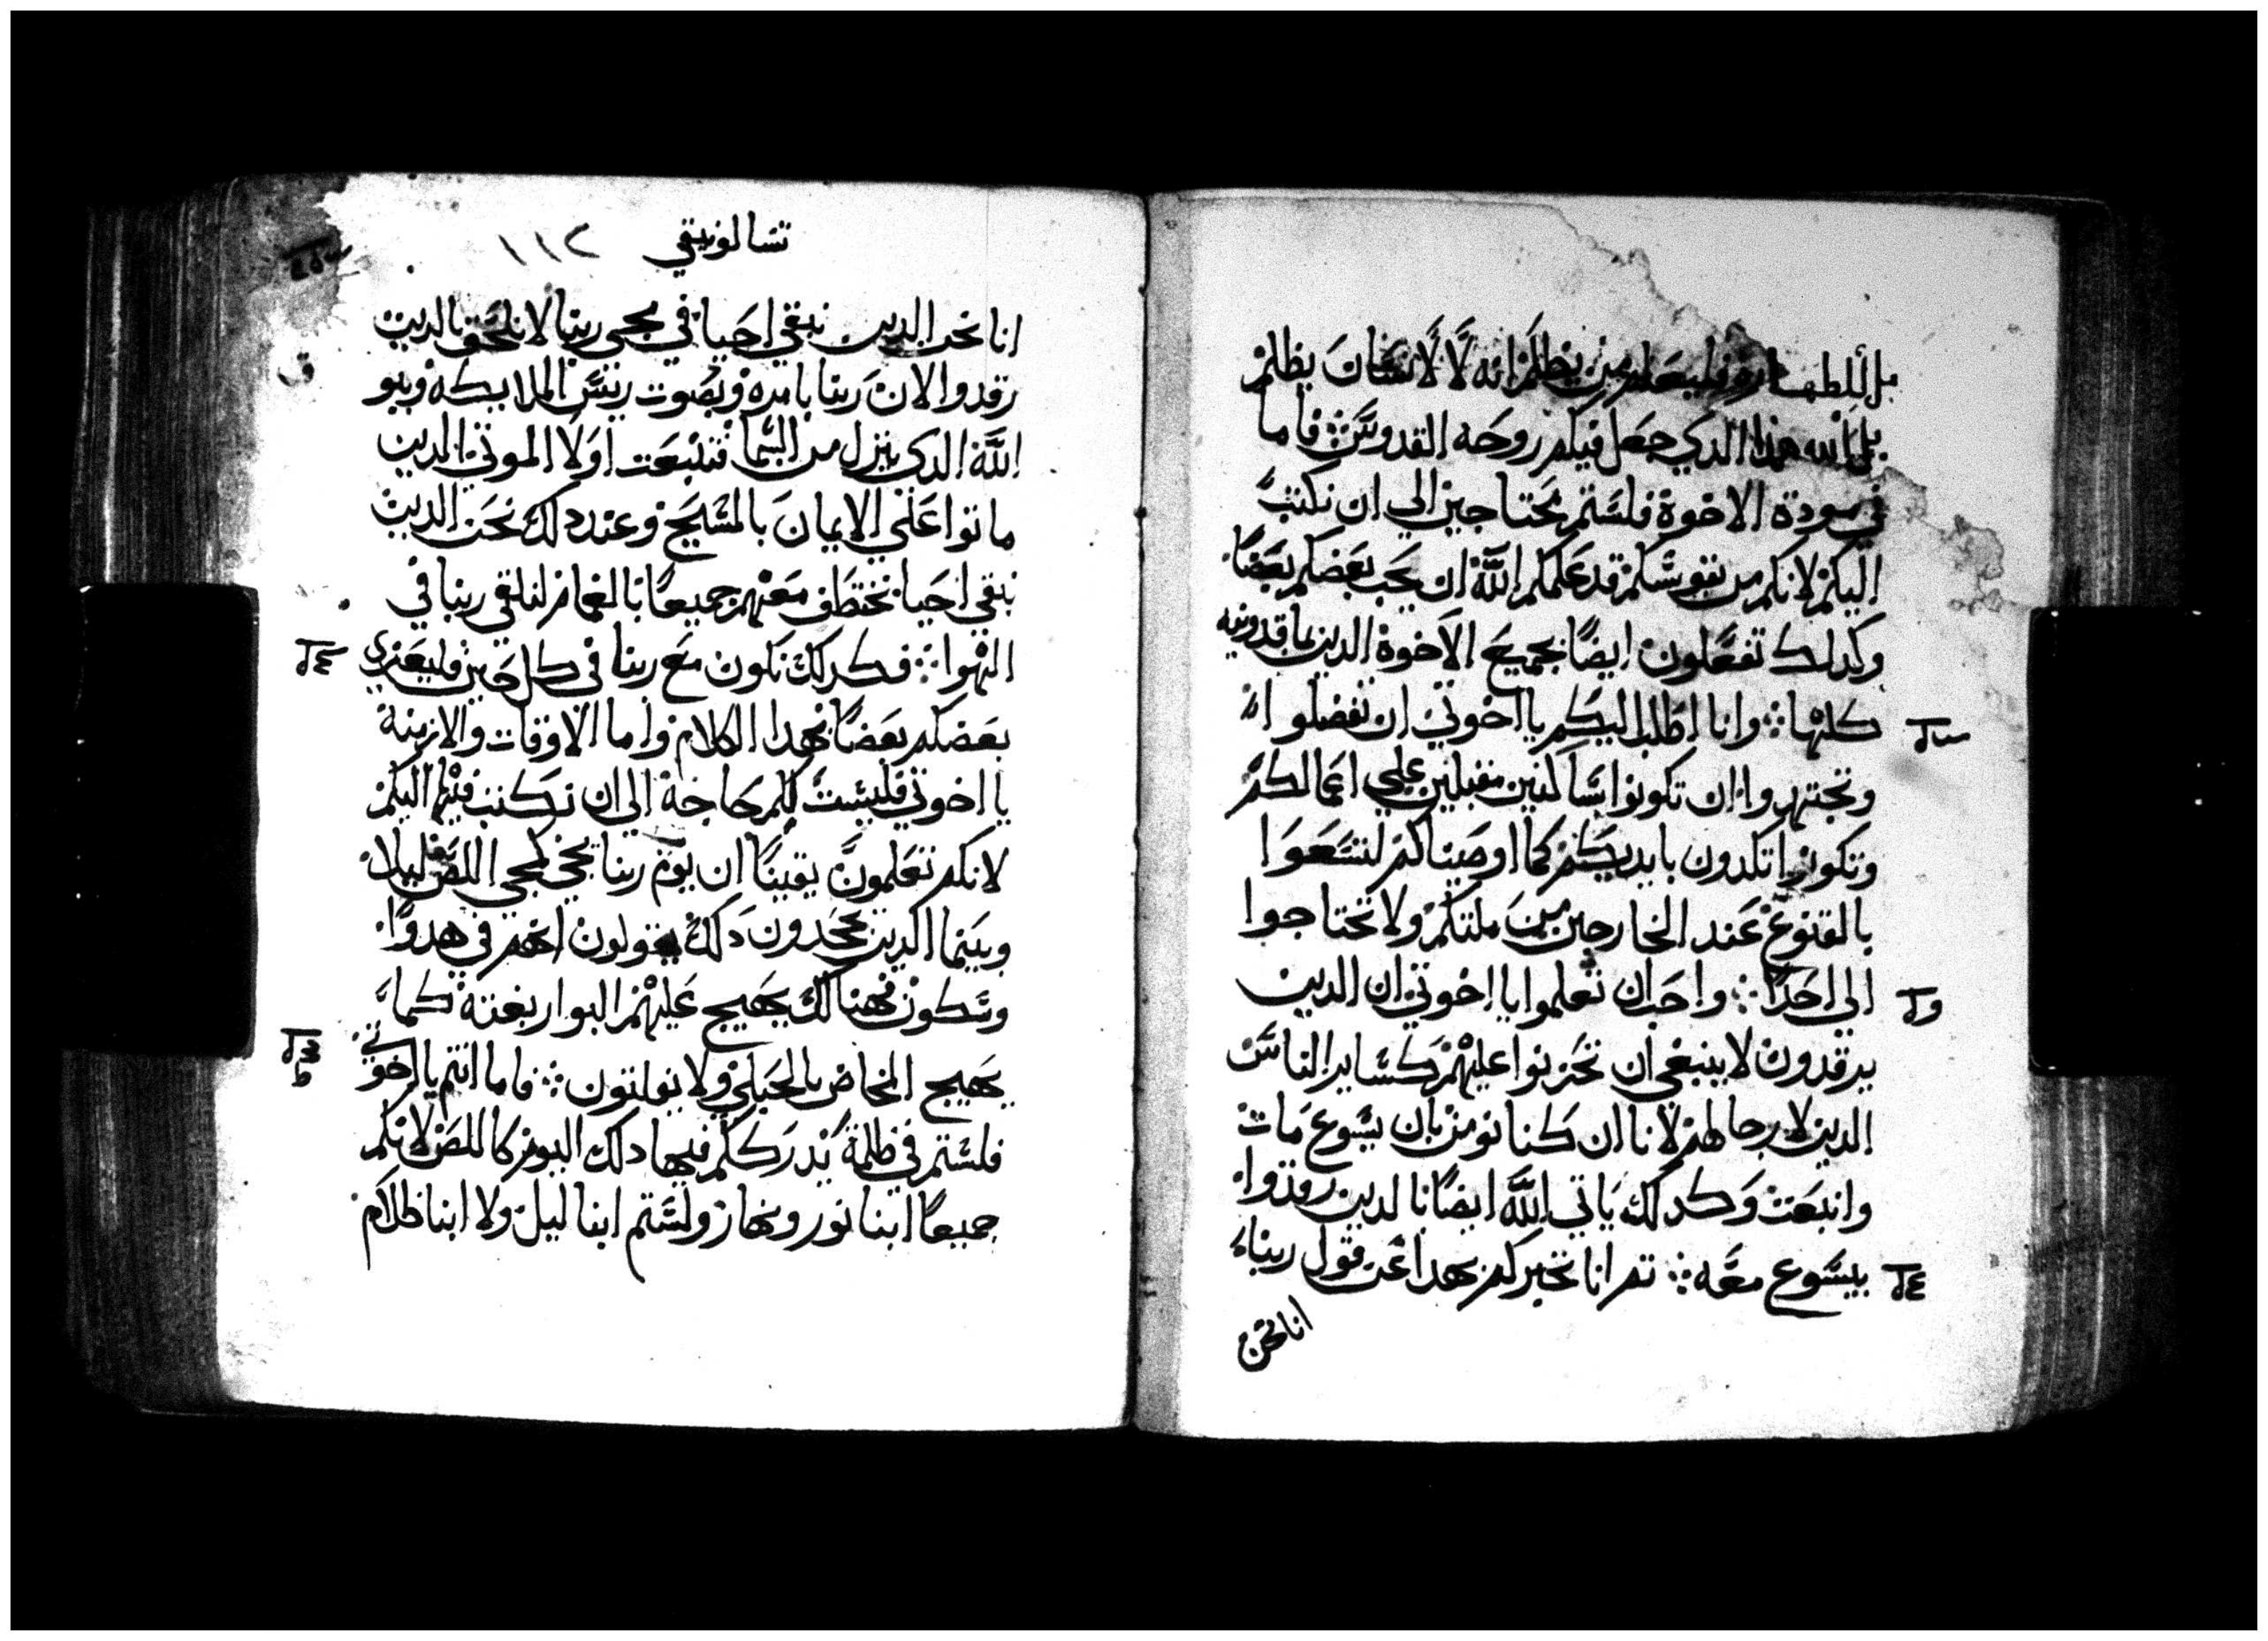 بل للطهاره فليعلم من يظلم انه لَا لَانسَان يظلم
بل الله هذا الدي جعل فيكم روحه القدوسَ ܀ فاما
في مودة الاخوة فلسَتم محتاجين الي ان نكتبَ
اليكم لانكم من نفوسَكم قد عَلمكم اللَّه ان يحَب بعَضكم بعَضاً
وكدلك تفعَلون ايضاً بجميعَ الاخوة الدين بماقدونيه
كلها ܀ وانا اطلب اليكم يا اخوتي ان تفضلوا
وتجتهدوا ان تكونوا سَاكنين مقبلين علي اعَمالكم
وتكونوا تكدون بايديكم كما اوصَيناكم لتسَعَوا
بالقنوع عَند الخارجين من ملتكم ولا تحَتاجوا
الي احَد ܀ واحَب ان تعَلموا يا اخوتي ان الدين
يرقدون لا ينبغي ان تحَزنوا عليهم كسَاير الناسَ
الدين لا رجا لهم لانا ان كنا نومن بان يسَوع مات
وانبعَت وكدلك ياتي اللَّه ايضاً بالدين رقدوا
بيسَوع معَه ܀ تم انا نخبركم بهدا عَن قول ربنا
انا نحن
تسَالونيقي ١١٢
انا نحن الدين نبقي احَيا في مجي ربنا لا نلحَق بالدين
رقدوا لان رَبنا بامره وبصَوت ريسَ الملايكه وببو
اللَّه الدي ينزل من السَما فتنبعَت اولًا الموتي الدين
ماتوا عَلي الايمان بالمسَيحَ وعند دلك نحَن الدين
نبقي احَيا نختطف معَهم جميعَاً بالغمام لنلقي ربنا في
الهوا ܀ فكدلك نكون معَ ربنا في كل حَين فليعَزي
بعَضكم بعَضاً بهدا الكلام واما الاوقات والازمنة
يا اخوتي فليسَت بكم حَاجة الي ان نكتب فيها اليكم
لانكم تعَلمون يقيناً ان يوم ربنا يجي كمجي اللصَ ليلا
وبينما الدين يجحَدون دلك يقولون انهم في هدوا
وسَكون فهنالك يهيج عَليهم البوار بغتة كما
يهيج المخاض بالحَبلي ولا يفلتون ܀ فاما انتم يا اخوتي
فلسَتم في ظلمة يدرَككم فيها دلك اليوم كاللصَ لانكم
جميعَاً ابنا نور ونهار ولسَتم ابنا ليل ولا ابنا ظلام